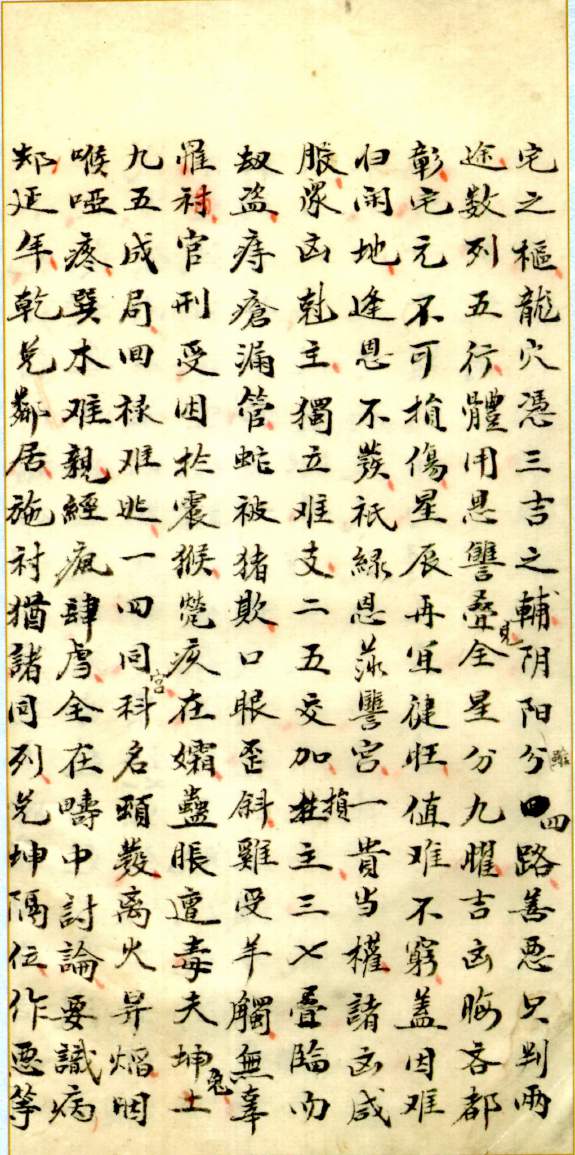 宅之樞龍穴憑三吉之輔阴阳雖分四路善恶只判兩
途数列五行體用恩讐叠見全星分九曜吉凶晦吝都
彰宅元不可損傷星辰再宜健旺值难不窮盖因难
归闲地逢恩不發祇緣恩落讐宮一貴当權諸凶咸
服众凶尅主獨立难支二五交加損主三七叠臨而
刼盗痔瘡漏管蛇被猪欺口眼歪斜雞受羊觸無辜
罹官刑受因於震猴煢疾在孀蠱脹遭毒夫坤土兔
九五成局回禄难逃一四同宮科名顕發离火昇熖咽
喉哑疼巽木难親經疯肆虐全在疇中討論要識病
却延年乾兑鄰居施衬猶諸同列兑坤隔位作恶等